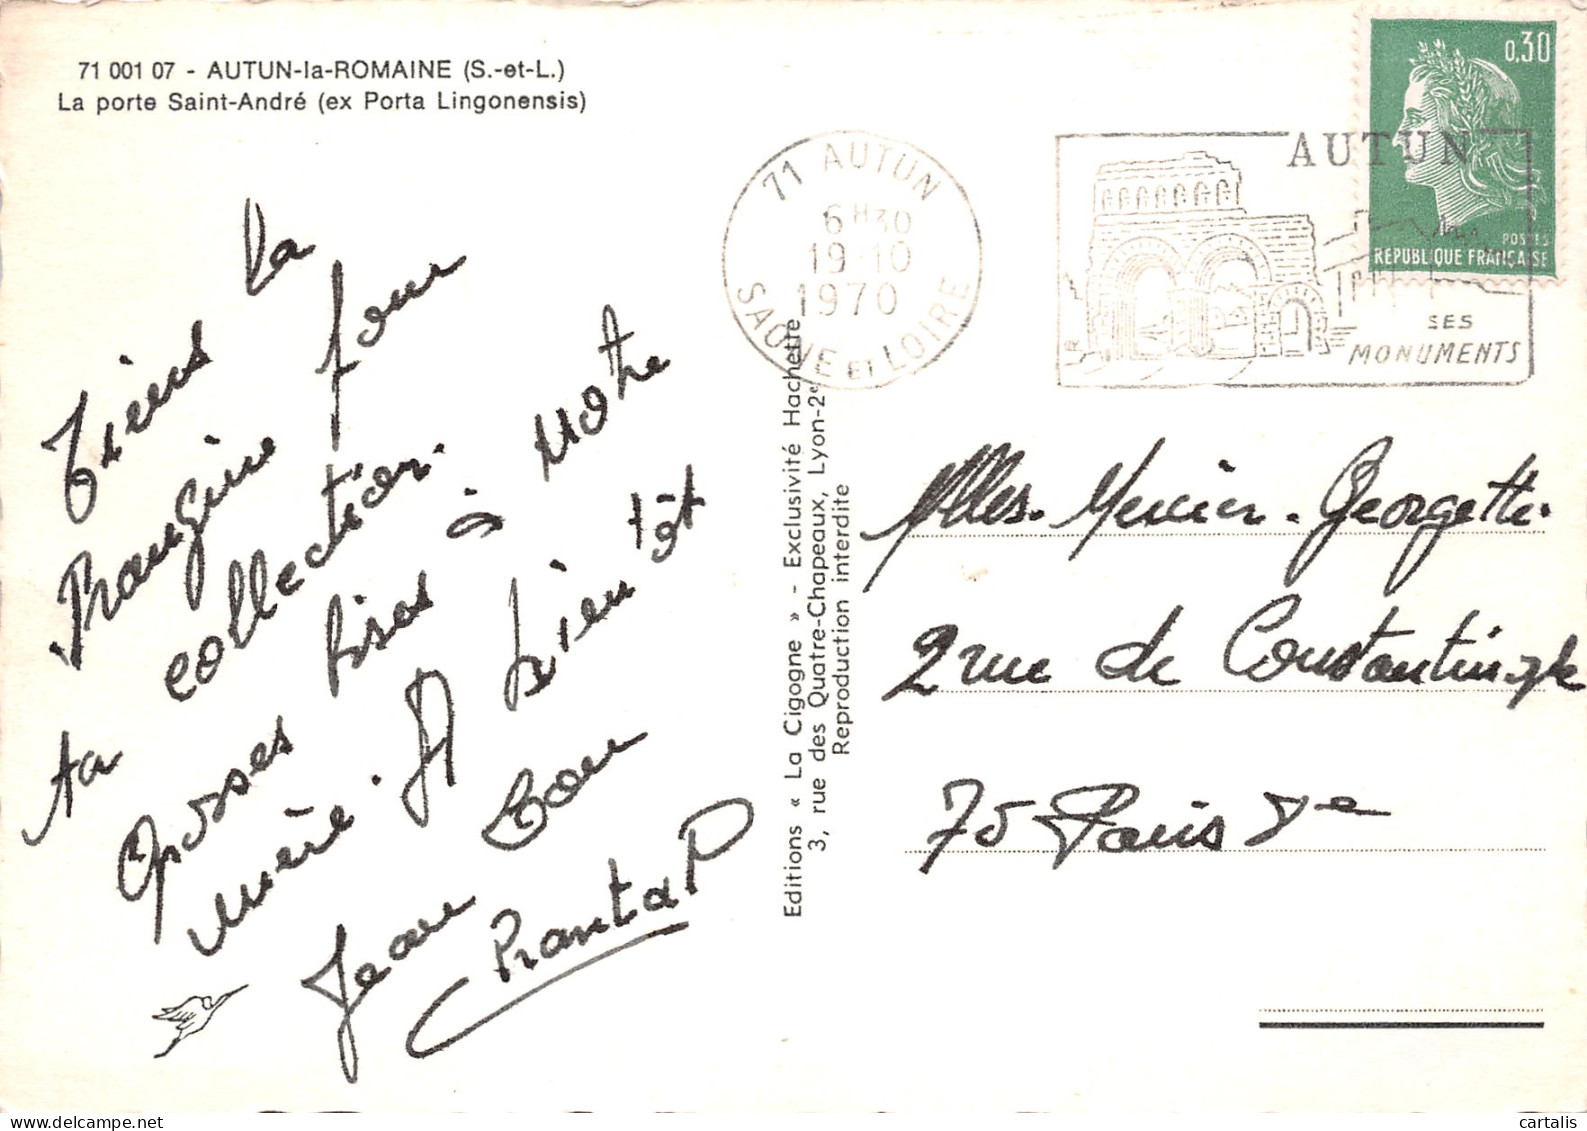 71 001 07 - AUTUN-la-ROMAINE (S.-et-L.)
La porte Saint-André (ex Porta Lingonensis)
Tiens la
frangine pour
ta collection.
Grosses bises à notre
mère. A bientôt
Jean Lou
Chantal
Editions « La Cigogne » - Exclusivité Hachette
3, rue des Quatre-Chapeaux, Lyon-2e
Reproduction interdite
71 AUTUN
6H30
19-10
1970
SAONE ET LOIRE
AUTUN
SES
MONUMENTS
0,30
POSTES
REPUBLIQUE FRANÇAISE
Mlles. Mercier. Georgette.
2 rue de
75 Paris Ve
cartalis